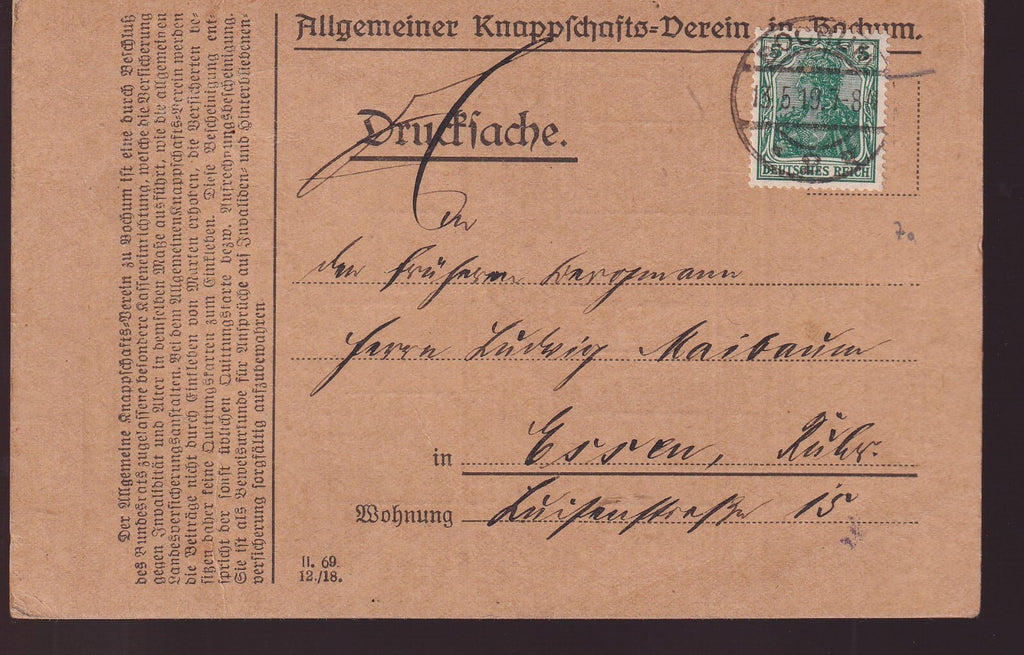 Allgemeiner Knappschafts-Verein in Bochum.
Drucksache.
5 5
13.5.19. -8
DEUTSCHES REICH
An
den früheren Bergmann
Herrn Ludwig Maibaum
in Essen, Ruhr.
Wohnung Luisenstraße 15
II. 69.
12./18.
Der Allgemeine Knappschafts-Verein zu Bochum ist eine durch Beschluß
des Bundesrats zugelassene besondere Kasseneinrichtung, welche die Versicherung
gegen Invalidität und Alter in demselben Maße ausführt, wie die allgemeinen
Landesversicherungsanstalten. Bei dem Allgemeinen Knappschafts-Verein werden
die Beiträge nicht durch Einkleben von Marken erhoben, die Versicherten be-
sitzen daher keine Quittungskarten zum Einkleben. Diese Bescheinigung ent-
spricht der sonst üblichen Quittungskarte bezw. Aufrechnungsbescheinigung.
Sie ist als Beweisurkunde für Ansprüche auf Invaliden- und Hinterbliebenen-
versicherung sorgfältig aufzubewahren